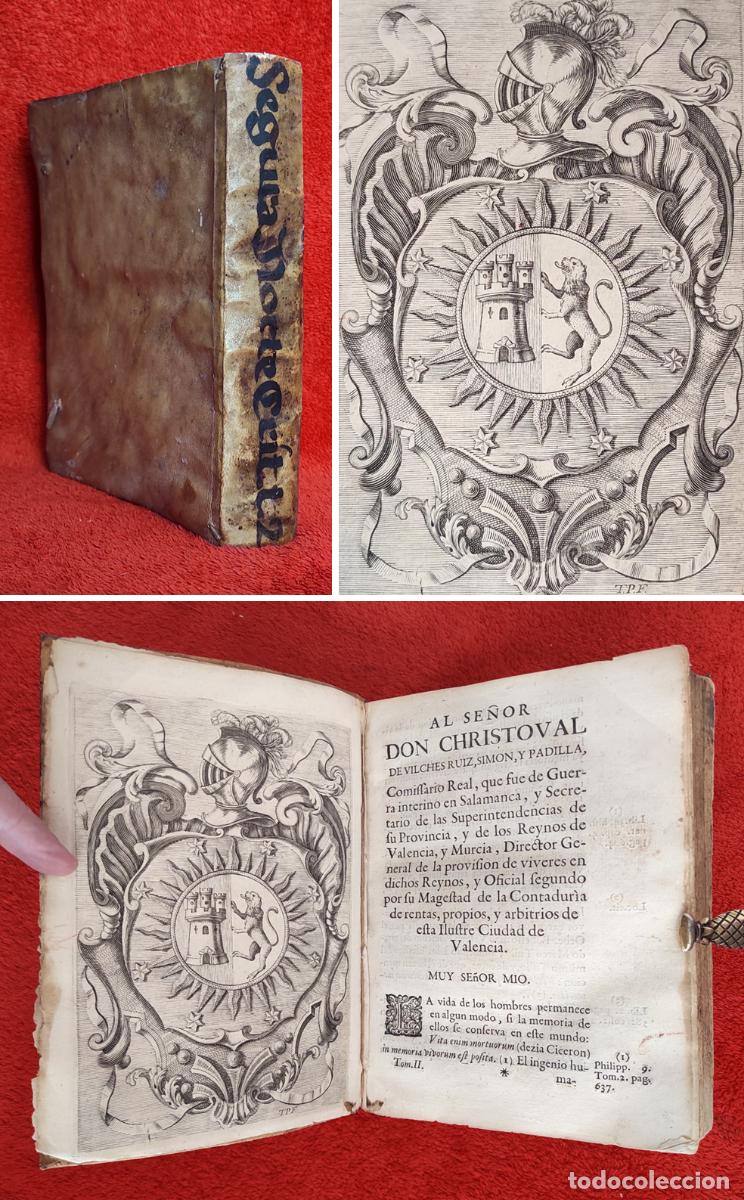 Seguia Norte Crít t 2
T.P.F
AL SEÑOR
DON CHRISTOVAL
DE VILCHES RUIZ, SIMON, Y PADILLA,
Comiſſario Real, que fue de Guer-
ra interino en Salamanca, y Secre-
tario de las Superintendencias de
ſu Provincia, y de los Reynos de
Valencia, y Murcia, Director Ge-
neral de la proviſion de viveres en
dichos Reynos, y Oficial ſegundo
por ſu Mageſtad de la Contadurìa
de rentas, propios, y arbitrios de
eſta Iluſtre Ciudad de
Valencia.
MUY SEñOR MIO.
LA vida de los hombres permanece
en algun modo, ſi la memoria de
ellos ſe conſerva en eſte mundo:
Vita enim mortuorum (dezia Ciceron)
in memoria vivorum eſt poſita. (1) El ingenio hu-
Tom. II. * ma-
(1)
Philipp. 9.
Tom. 2. pag.
637.
T.P.F
todocoleccion